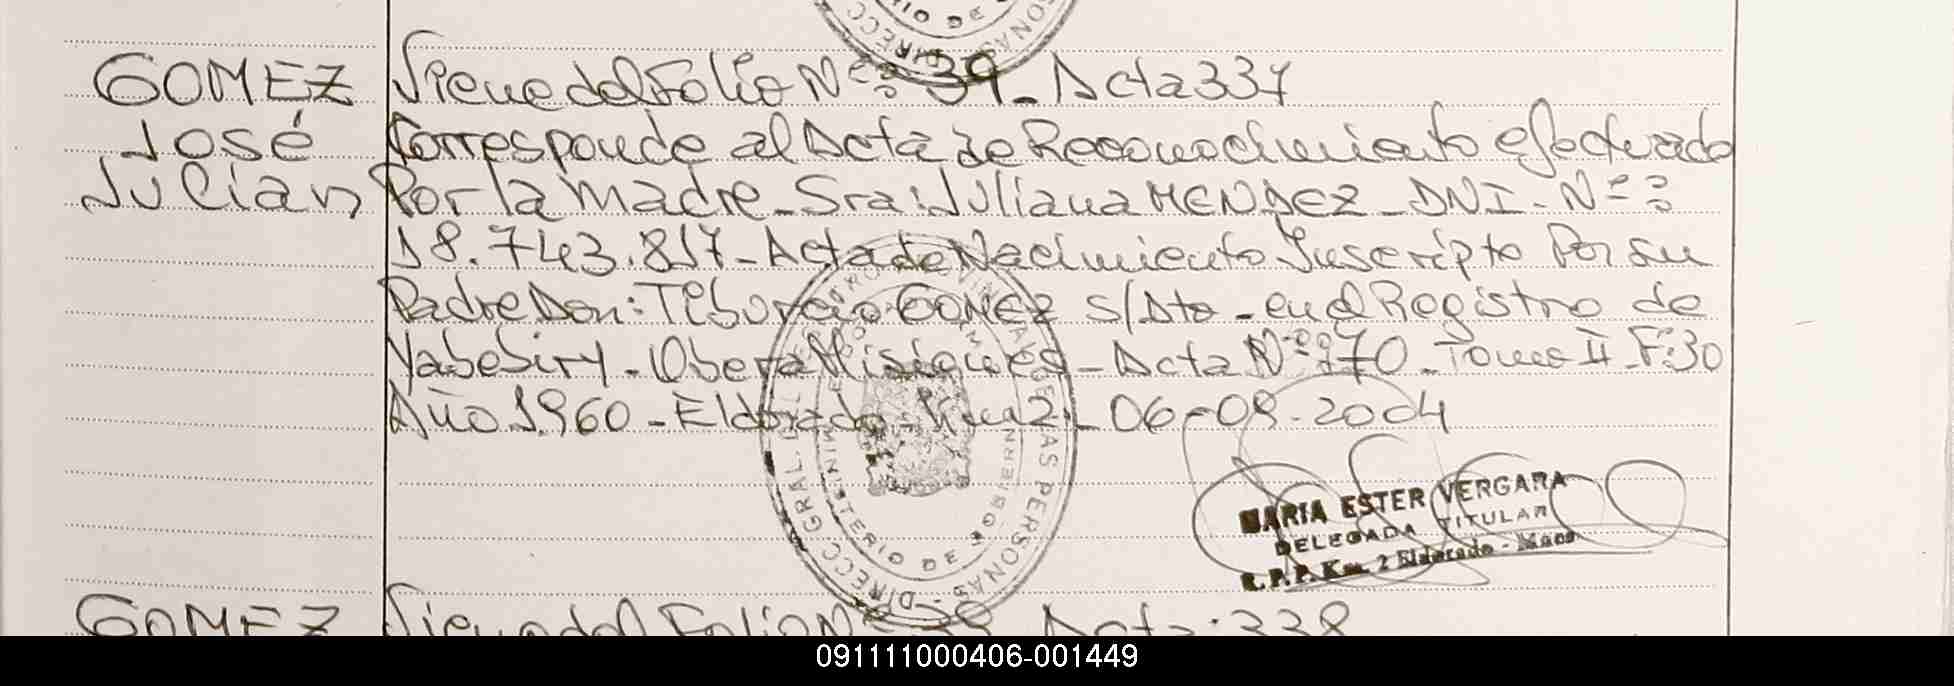 GOMEZ Viene del Folio Nº: 39 - Acta 337
José Corresponde al Acta de Reconocimiento efectuado
Julian Por la Madre - Sra: Juliana MENDEZ - DNI - Nº:
18.743.817 - Acta de Nacimiento Inscripto Por su
Padre Don: Tiburcio GOMEZ s/Dto - en el Registro de
Yabebiry - Obera Misiones - Acta Nº: 170 - Tomo II - F: 30
Año 1.960 - Eldorado - Km 2 - 06-09-2004
MARIA ESTER VERGARA
DELEGADA TITULAR
R.P.P. Km. 2 Eldorado - Mnes
DIRECC. GRAL. DEL REGISTRO PROVINCIAL DE LAS PERSONAS
MINISTERIO DE GOBIERNO
GOMEZ Viene del Folio Nº 39 Acta: 338
091111000406-001449